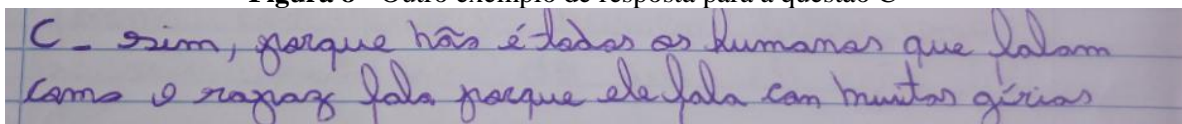 Figura 8 - Outro exemplo de resposta para a questão C
C - sim, porque não é todos os humanos que falam
como o rapaz fala porque ele fala con muitas gírias